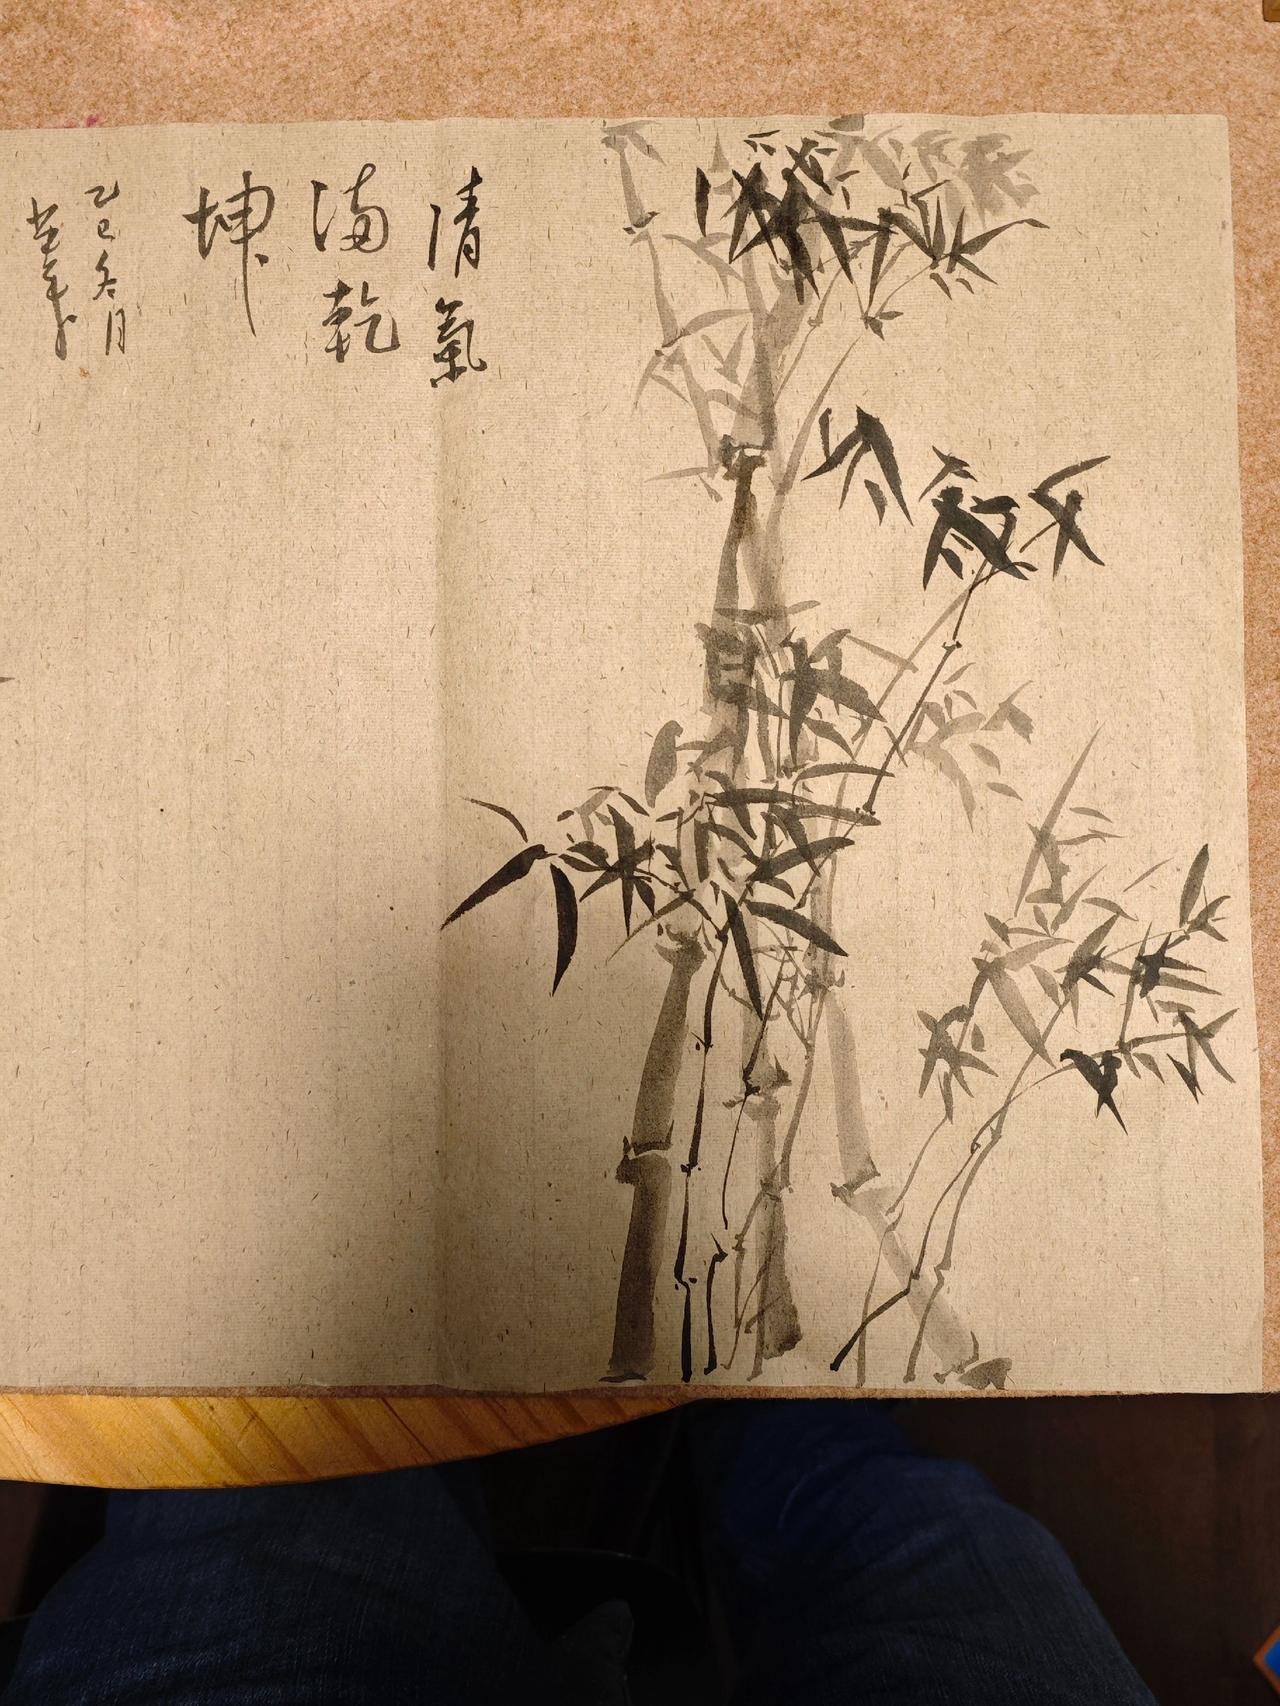 清氣
滿乾
坤
乙巳冬月